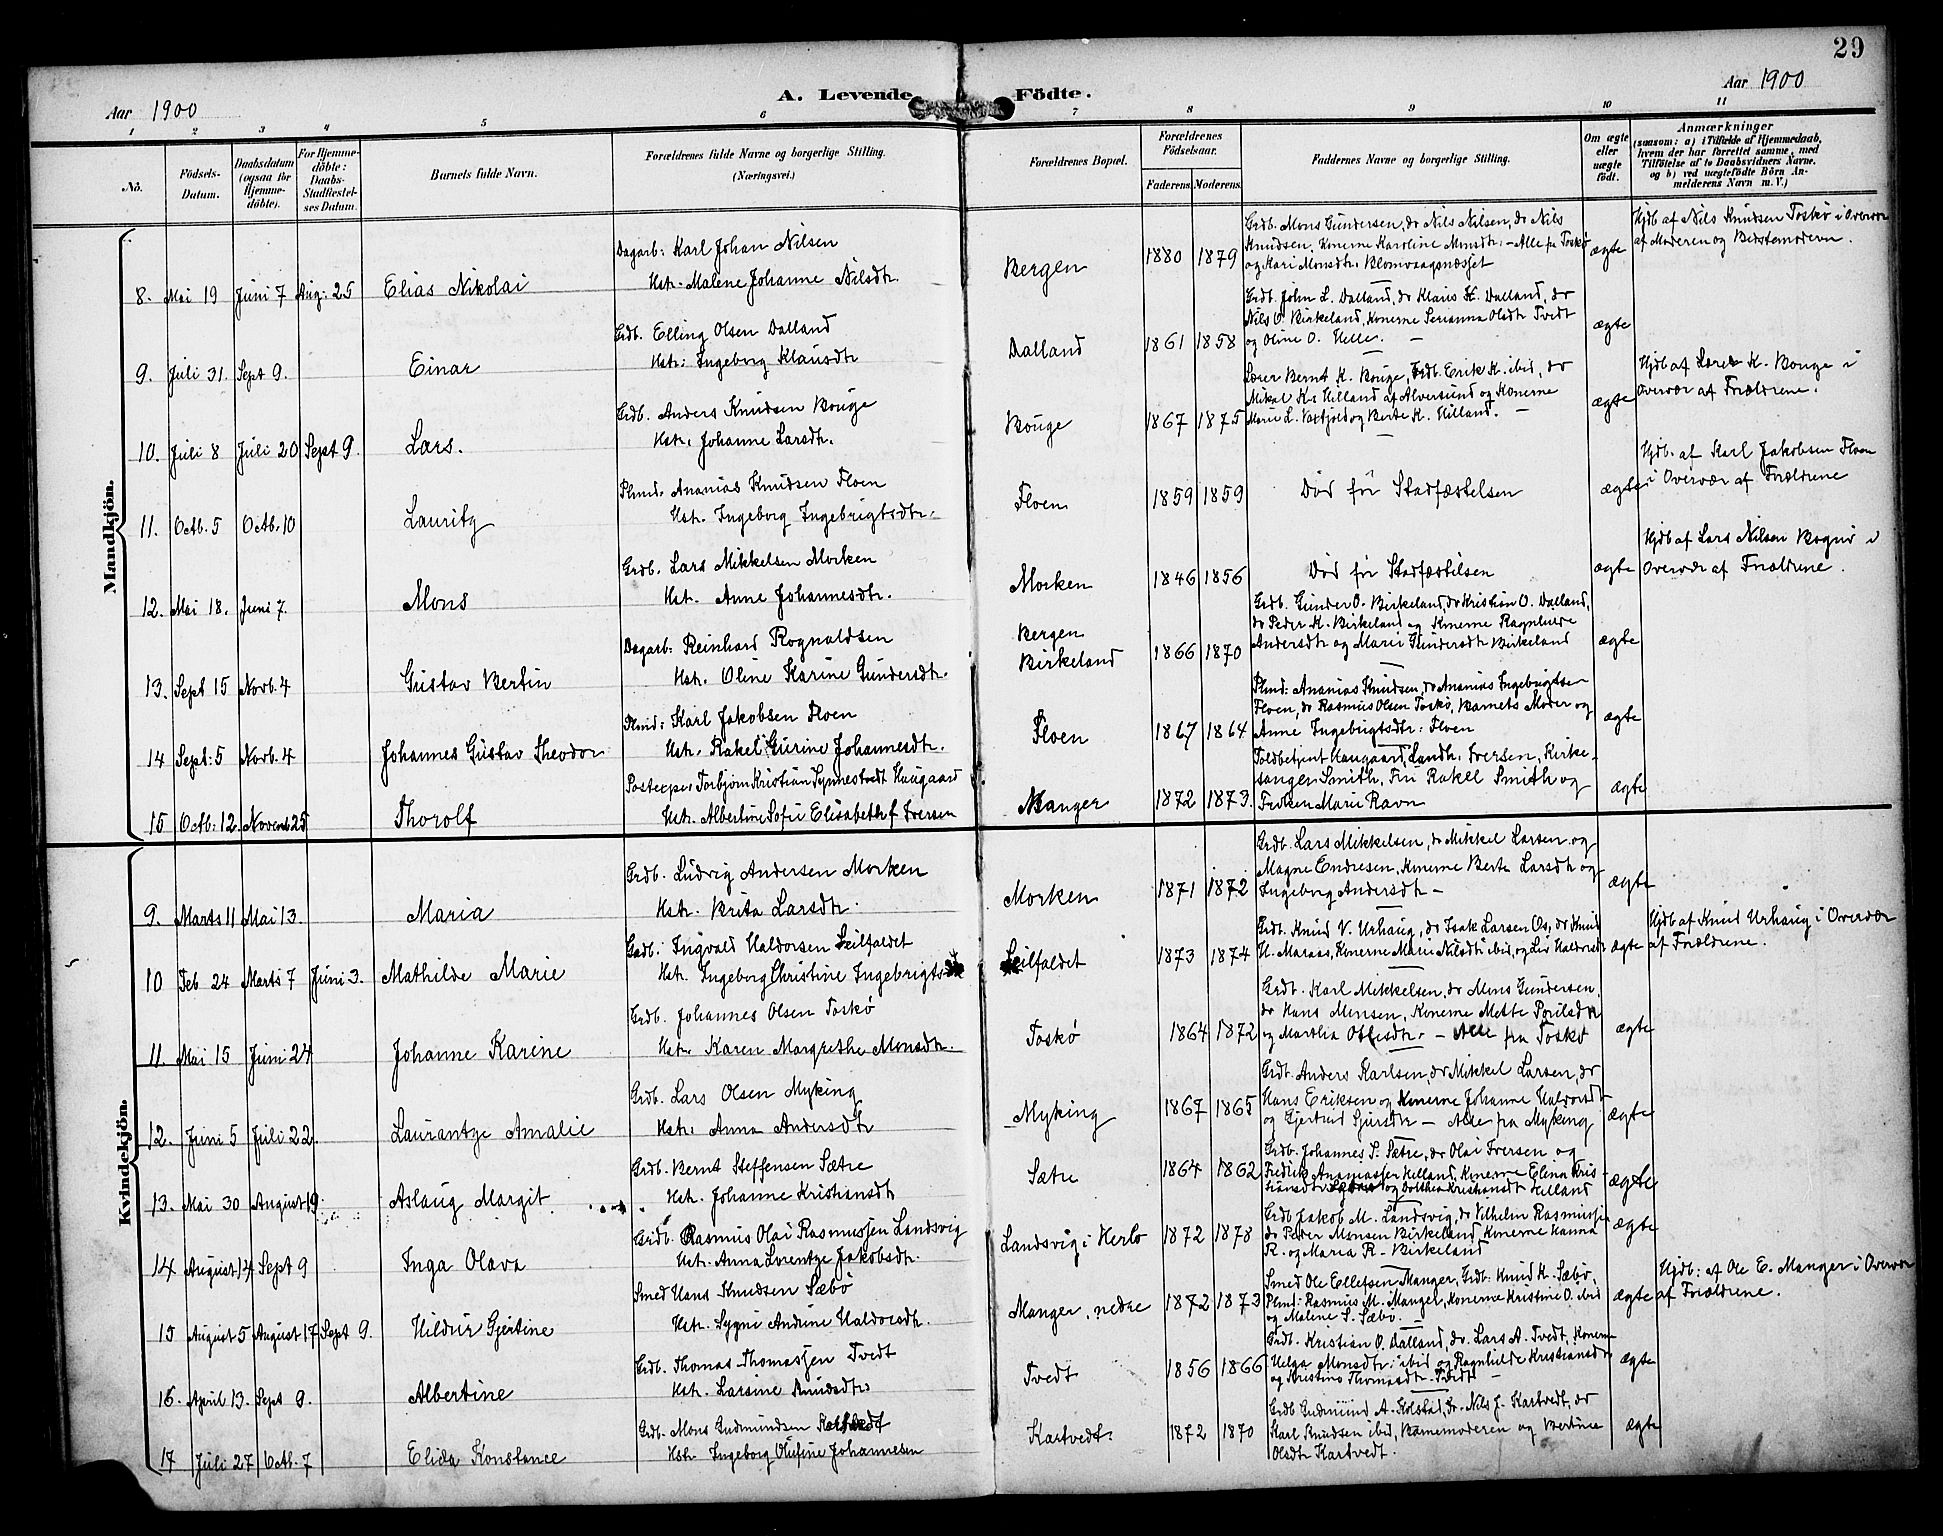 29
A. Levende Födte.
Aar 1900
Aar 1900
1 2 3 4 5 6 7 8 9 10 11
No.
Födsels-Datum.
Daabsdatum (ogsaa for Hjemme-döbte).
For Hjemme-döbte: Daabs-Stadfæstel-ses Datum.
Barnets fulde Navn.
Forældrenes fulde Navne og borgerlige Stilling.
(Næringsvei.)
Forældrenes Bopæl.
Forældrenes Födselsaar.
Faderens. Moderens.
Faddernes Navne og borgerlige Stilling.
Om ægte eller uægte födt.
Anmærkninger
(saasom: a) i Tilfælde af Hjemmedaab, hvem der har forrettet samme, med Tilföielse af to Daabsvidners Navne. og b) ved uægtefödte Börn An-melderens Navn m. V.)
Mandkjön.
8. Mai 19 Juni 7 Aug: 25 Elias Nikolai
Dagarb: Karl Johan Nilsen
Hstr. Malene Johanne Nilsdtr.
Bergen 1880 1879
Grdb. Mons Gundersen, do Nils Nilsen, do Nils
Knudsen, Konerne Karoline Monsdtr. - Alle fra Toskø
og Kari Monsdtr. Blomvaagsnæsset
ægte
Hjdb af Nils Knudsen Toskø i Overvær
af Moderen og Bedstemoderen.
9. Juli 31. Sept 9. Einar
Grdb. Elling Olsen Dalland
Hstr: Ingeborg Klausdtr
Dalland 1861 1858
Grdb. John L. Dalland, do Klaus H. Dalland, do
Nils O. Birkeland, Konerne Serianna Olsdtr Tvedt
og Oline O. Helle. -
ægte
10. Juli 8 Juli 20 Sept 9. Lars.
Grdb. Anders Knudsen Bouge
Hstr. Johanne Larsdtr.
Bouge 1867 1875
Lærer Bernt K. Bouge, Grdb. Erik K. ibid, do
Mikal Ks Hilland af Alversund og Konerne
Marie L. og Berte K. Hilland. -
ægte
Hjdb af Lærer K. Bouge i
Overvær af Forældrene.
11. Octb. 5 Octb. 10 Lauritz
Plmd. Ananias Knudsen Floen
Hstr. Ingeborg Ingebrigtsdtr.
Floen 1859 1859
Død før Stadfæstelsen
ægte
Hjdb. af Karl Jakobsen Floen
i Overvær af Forældrene
12. Mai 18. Juni 7. Mons
Grdb. Lars Mikkelsen Morken
Hst. Anne Johannesdtr.
Morken 1846 1856
Død før Stadfæstelsen
ægte
Hjdb af Lars Nilsen Bognø i
Overvær af Forældrene.
13. Sept 15 Novb. 4 Gustav Bertin
Dagarb: Reinhard Rognaldsen
Hstr. Oline Karine Gundersdtr.
Bergen
Birkeland 1866 1870
Grdb. Gunder O. Birkeland, do Kristian O. Dalland,
do Peder M. Birkeland og Konerne Ragnhilde
Andersdtr og Marie Gundersdtr Birkeland
ægte
14 Sept: 5 Novb. 4 Johannes Gustav Theodor
Plmd: Karl Jakobsen Floen
Hstr. Rakel Gurine Johannesdtr.
Floen 1867 1864
Plmd: Ananias Knudsen, do Ananias Ingebrigtsen
Floen, do Rasmus Olsen Toskø, Barnets Moder og
Anne Ingebrigtsdtr. Floen
ægte
15 Octb: 12 Novemb 25 Thorolf
Postexp: Torbjørn Kristian Synnestvedt Haugaard
Hstr. Albertine Sofie Elisabeth f Iversen
Manger 1872 1873.
Toldbetjent Haugaard, Landh. Iversen, Kirke-
sanger Smith, Fru Rakel Smith og
Frøken Marie Ravn
ægte
Kvindekjön.
9. Marts 11 Mai 13. Maria
Grdb. Ludvig Andersen Morken
Hstr. Brita Larsdtr.
Morken 1871 1872
Grdb. Lars Mikkelsen, do Mikkel Larsen og
Magne Endresen, Konerne Berte Larsdtr og
Ingeborg Andersdtr -
ægte
10 Feb 24 Marts 7 Juni 3. Mathilde Marie
Grdb: Ingvald Haldorsen Leilfaldet
Hstr. Ingeborg Christine Ingebrigtsdtr
Leilfaldet 1873 1874
Grdb. Knud V. Urhaug, do Isak Larsen Os, do Knud
H. Maraas, Konerne Marie Nilsdtr ibid, og Liv Haldorsdtr
ægte
Hjdb af Knud Urhaug i Overvær
af Forældrene.
11. Mai 15 Juni 24 Johanne Karine
Grdb. Johannes Olsen Toskø
Hstr. Karen Margrethe Monsdtr.
Toskø 1864 1872
Grdb. Karl Mikkelsen, do Mons Gundersen,
do Hans Monsen, Konerne Mette Poulsdtr
og Martha Ottesdtr. - Alle fra Toskø
ægte
12. Juni 5 Juli 22. Laurantze Amalie
Grdb. Lars Olsen Myking
Hstr. Anna Andersdtr
Myking 1867 1865
Grdb. Anders Karlsen, do Mikkel Larsen, do
Hans Eriksen og Konerne Johanne Halvorsdtr
og Gjertrud Sjursdtr - Alle fra Myking
ægte
13. Mai 30 August 19. Aslaug Margit
Grdb. Bernt Steffensen Sætre
Hstr. Johanne Kristiansdtr
Sætre 1864 1862
Grdb. Johannes S. Sætre, do Olai Iversen og
Fredrik Ananiassen Helland, Konerne Elena Kris-
tiansdtr og Dorthea Kristiansdtr Helland
ægte
14 August 14 Sept 9 Inga Olava
Grdb. Rasmus Olai Rasmussen Landsvig
Hstr. Anna Lorentze Jakobsdtr.
Landsvig i Herlø 1872 1878
Grdb Jakob M. Landsvig, do Vilhelm Rasmussen
do Peder Monsen Birkeland, Konerne Hanna
R. og Maria R. Birkeland
ægte
15 August 5 August 17 Sept 9. Hildur Gjertine
Smed Hans Knudsen Sæbø
Hstr. Sygni Andrine Haldorsdtr.
Manger, nedre 1872 1873
Smed Ole Ellefsen Manger, Grdb. Knud K. Sæbø,
Plmd: Rasmus M. Manger, Konerne Kristine O. ibid
og Malene S. Sæbø. -
ægte
Hjdb: af Ole E. Manger i Overvær
af Forældrene.
16. April 13. Sept 9. Albertine
Grdb. Thomas Thomassen Tvedt
Hstr. Larsine Knudsdtr
Tvedt 1856 1866
Grdb. Kristian O. Dalland, do. Lars A. Tvedt, Konerne
Helga Monsdtr. ibid og Ragnhilde Kristiansdtr
og Kristine Thomasdtr Tvedt -
ægte
17 Juli 27 Octb. 7 Elida Konstance
Grdb. Mons Gudmundsen Kartvedt
Hstr. Ingeborg Olufine Johannesen
Kartvedt. 1872 1870
Grdb Gudmund A. Kolstad, do. Nils J. Kartvedt, do
Karl Knudsen ibid, Barnemoderen og Bertine
Olsdtr Kartvedt.
ægte